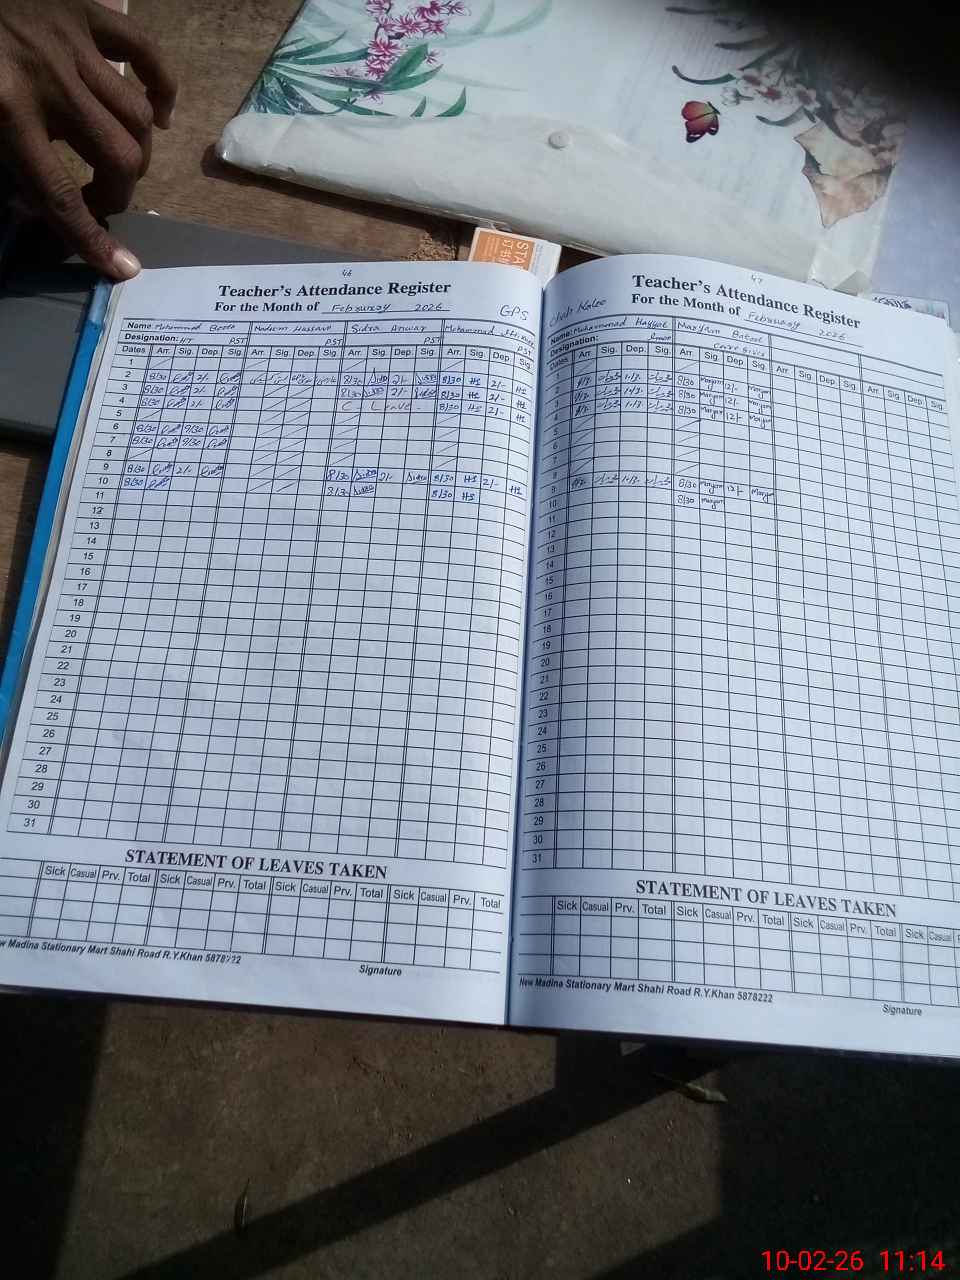 46
Teacher's Attendance Register
For the Month of February 2026 GPS
Name Muhammad Nadeem Hussain Sidra Anwar Muhammad
Designation: HT PST PST PST PST
Dates Arr. Sig. Dep. Sig. Arr. Sig. Dep. Sig. Arr. Sig. Dep. Sig. Arr. Sig. Dep. Sig.
1
2 8/30 2/- 8/30 Sidra 2/- Sidra 8/30 2/-
3 8/30 2/- 8/30 Sidra 2/- Sidra 8/30 2/-
4 8/30 2/- C - Leave 8/30 2/-
5
6 8/30 9/30
7 8/30 9/30
8
9 8/30 2/- 8/30 Sidra 2/- Sidra 8/30 2/-
10 8/30 8/30 Sidra 8/30
11
12
13
14
15
16
17
18
19
20
21
22
23
24
25
26
27
28
29
30
31
STATEMENT OF LEAVES TAKEN
Sick Casual Prv. Total Sick Casual Prv. Total Sick Casual Prv. Total Sick Casual Prv. Total
New Madina Stationary Mart Shahi Road R.Y.Khan 5878222
Signature
47
Teacher's Attendance Register
For the Month of February 2026
Chah
Name: Muhammad Hayyat Maryam Batool
Designation: Care Giver
Dates Arr. Sig. Dep. Sig. Arr. Sig. Dep. Sig. Arr. Sig. Dep. Sig. Arr. Sig. Dep. Sig.
1
2 8/30 Maryam 12/- Maryam
3 8/30 Maryam 12/- Maryam
4 8/30 Maryam 12/- Maryam
5
6
7
8
9 8/30 Maryam 12/- Maryam
10 8/30 Maryam
11
12
13
14
15
16
17
18
19
20
21
22
23
24
25
26
27
28
29
30
31
STATEMENT OF LEAVES TAKEN
Sick Casual Prv. Total Sick Casual Prv. Total Sick Casual Prv. Total Sick Casual
New Madina Stationary Mart Shahi Road R.Y.Khan 5878222
Signature
10-02-26 11:14